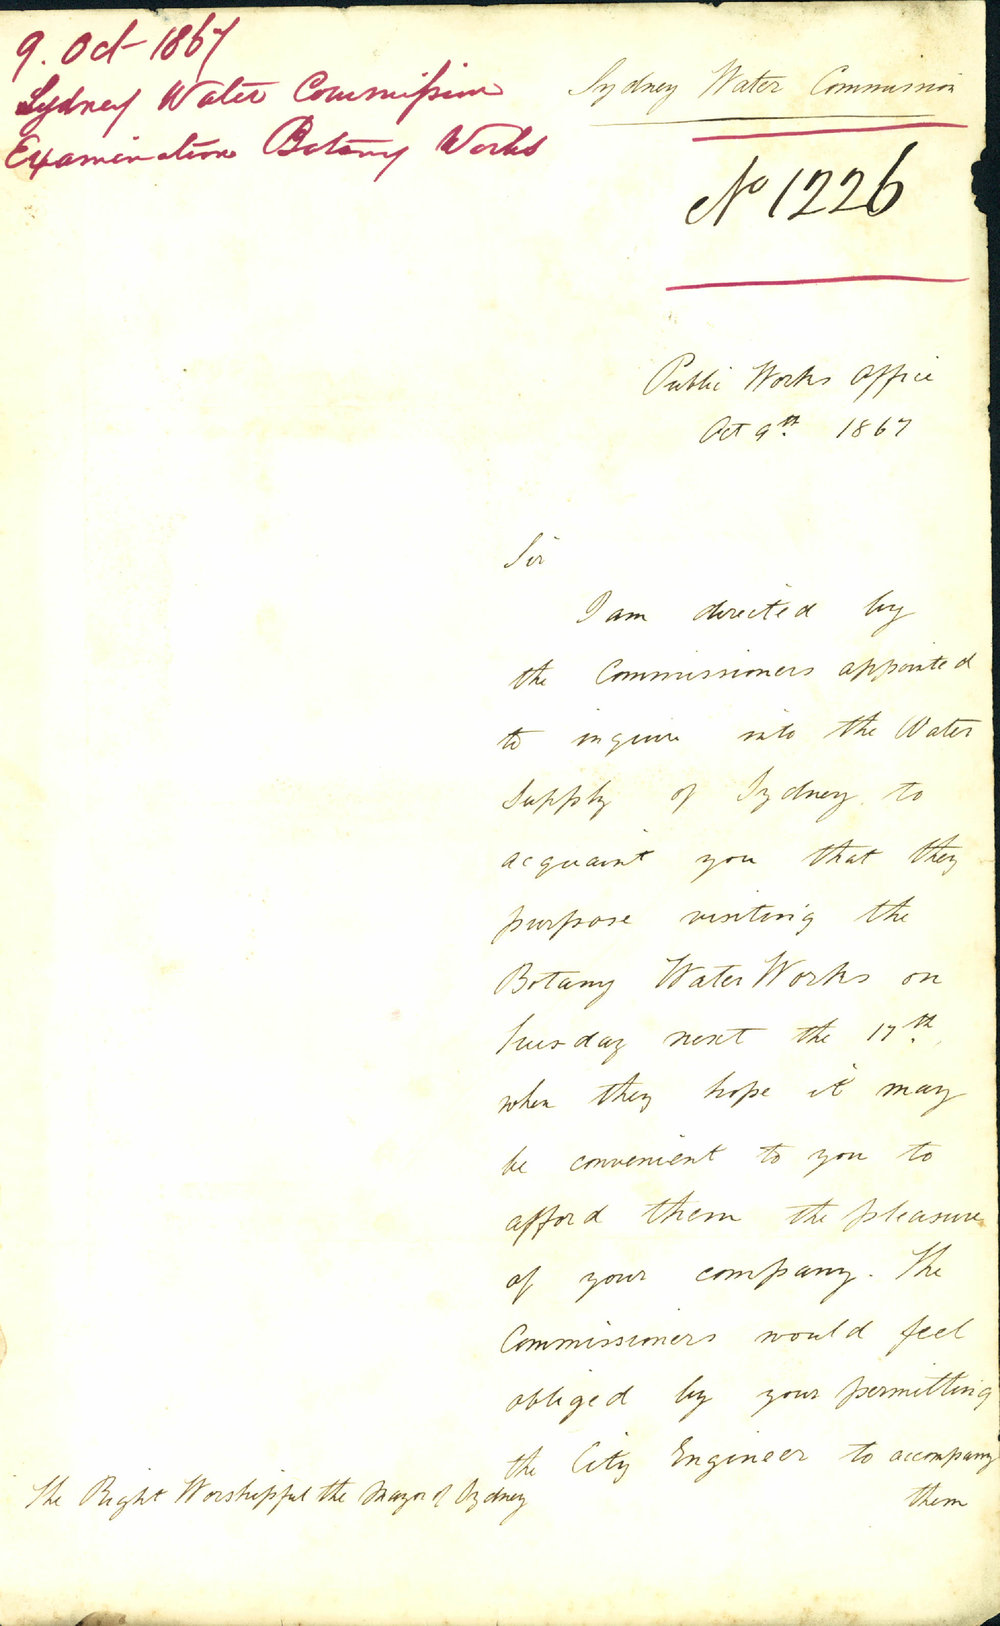 9. Oct 1867
Sydney Water Commission
Examination Botany Works
Sydney Water Commission
No 1226
Public Works Office
Oct 9th 1867
Sir
I am directed by
the Commissioners appointed
to inquire into the Water
Supply of Sydney to
acquaint you that they
purpose visiting the
Botany Water Works on
Tuesday next the 17th,
when they hope it may
be convenient to you to
afford them the pleasure
of your company. The
Commissioners would feel
obliged by your permitting
the City Engineer to accompany
them
The Right Worshipful the Mayor of Sydney